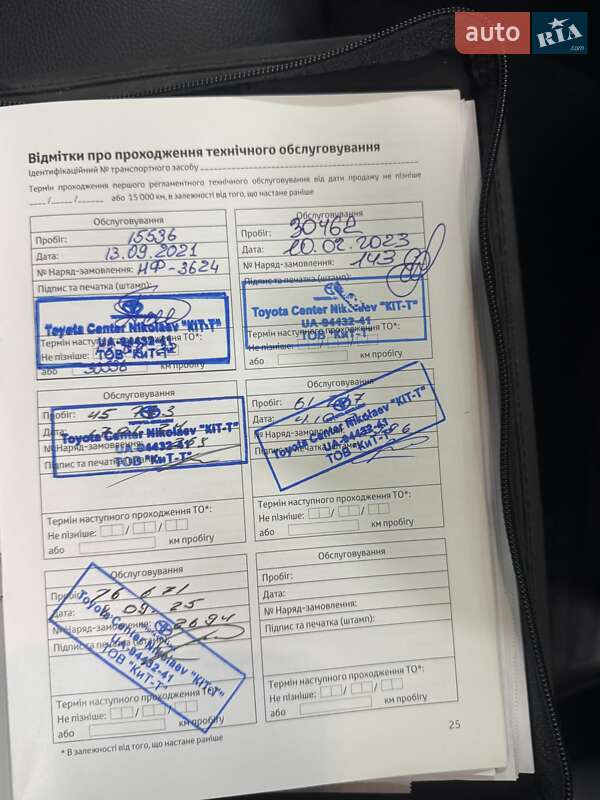 auto RIA .com
Відмітки про проходження технічного обслуговування
Ідентифікаційний № транспортного засобу
Термін проходження першого регламентного технічного обслуговування від дати продажу не пізніше
/ / або 15 000 км, в залежності від того, що настане раніше
Обслуговування
Пробіг: 15536
Дата: 13.09.2021
№ Наряд-замовлення: НФ-3624
Підпис та печатка (штамп):
Toyota Center Nikolaev "КІТ-Т"
UA-94432-41
ТОВ "КиТ-Т"
Термін наступного проходження ТО*:
Не пізніше:
або 30536 км пробігу
Обслуговування
Пробіг: 30462
Дата: 10.02.2023
№ Наряд-замовлення: 143
Підпис та печатка (штамп):
Toyota Center Nikolaev "КІТ-Т"
UA-94432-41
ТОВ "КиТ-Т"
Термін наступного проходження ТО*:
Не пізніше: / /
або км пробігу
Обслуговування
Пробіг: 45
Дата:
№ Наряд-замовлення:
Підпис та печатка
Toyota Center Nikolaev "КІТ-Т"
UA-94432-41
ТОВ "КиТ-Т"
Термін наступного проходження ТО*:
Не пізніше: / /
або км пробігу
Обслуговування
Пробіг:
Дата:
№ Наряд-замовлення:
Підпис та печатка
Toyota Center Nikolaev "КІТ-Т"
UA-94432-41
ТОВ "КиТ-Т"
Термін наступного проходження ТО*:
Не пізніше: / /
або км пробігу
Обслуговування
Пробіг: 76 671
Дата: 09 25
№ Наряд-замовлення: 2694
Підпис та печатка
Toyota Center Nikolaev "КІТ-Т"
UA-94432-41
ТОВ "КиТ-Т"
Термін наступного проходження ТО*:
Не пізніше: / /
або км пробігу
Обслуговування
Пробіг:
Дата:
№ Наряд-замовлення:
Підпис та печатка (штамп):
Термін наступного проходження ТО*:
Не пізніше: / /
або км пробігу
* В залежності від того, що настане раніше
25